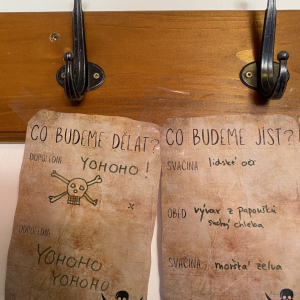 CO BUDEME DĚLAT?
DOPOLEDNE
YOHOHO!
ODPOLEDNE
YOHOHO
YOHOHO
CO BUDEME JÍST?
SVAČINA lidské oči
OBĚD vývar z papouška
suchý chleba
SVAČINA mořská želva